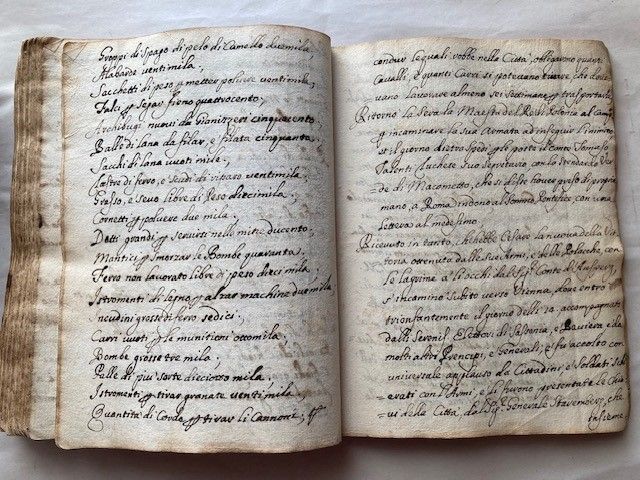 Groppi di Spago di pelo di Camello duemila
Alabarde ventimila,
Sacchetti di peso p metter polvere ventimila,
Falci p segar fieno quattrocento,
Archibugi nuovi da Gianizzeri cinquecento
Balle di lana da filar, e filata cinquanta,
Sacchi di lana vuoti mile,
Lastre di ferro, e Scudi di vitaro ventimila,
Grasso, e Sevo libre di Peso diecimila,
Cornetti p polvere due mila,
Detti grandi p servirsi nelle mine ducento,
Mantici p Smorzar le Bombe quaranta,
Ferro non lavorato libre di peso dieci mila,
Istromenti di legno p alzar machine due mila
ncudini grosse di ferro sedici,
Carri vuoti p le munitioni ottomila,
Bombe grosse tre mila,
Palle di più sorte dieciotto mila,
Istromenti p tirar granate ventimila,
Quantità di Corde p tirar li Cannoni,
condur le quali robbe nella Città, obligarono quanti
Cavalli, e quanti Carri si potevano havere, che dove-
vano lavorare almeno sei Settimane p trasportarle
Ritornò la Sera la Maestà del Rè di Polonia al campo
p incaminare la sua Armata ad inseguir l'inimico,
et il giorno dietro spedì p le poste il Conte Tomaso
Talenti Luchese suo Segretario con lo Stendardo Ver-
de di Macometto, che si disse haver preso di propria
mano, a Roma in dono al Sommo Pontefice con una
lettera al medesimo.
Ricevuto in tanto, che hebbe Cesare la nuova della Vit-
toria ottenuta dalle Sue Armi, e delle Polacche, con
le lagrime a gl'occhi
s'incaminò subito verso Vienna, dove entrò
trionfantemente il giorno delli 14, accompagnato
dalli Sereniss. Elettori di Sassonia, e Baviera e da
molti altri Prencipi, e Generali, e fu accolto con
universale applauso da Cittadini, e Soldati schi-
erati con l'Armi, e li furono presentate le Chia-
vi della Città, dal Sig. Generale Staremberg, che
insieme